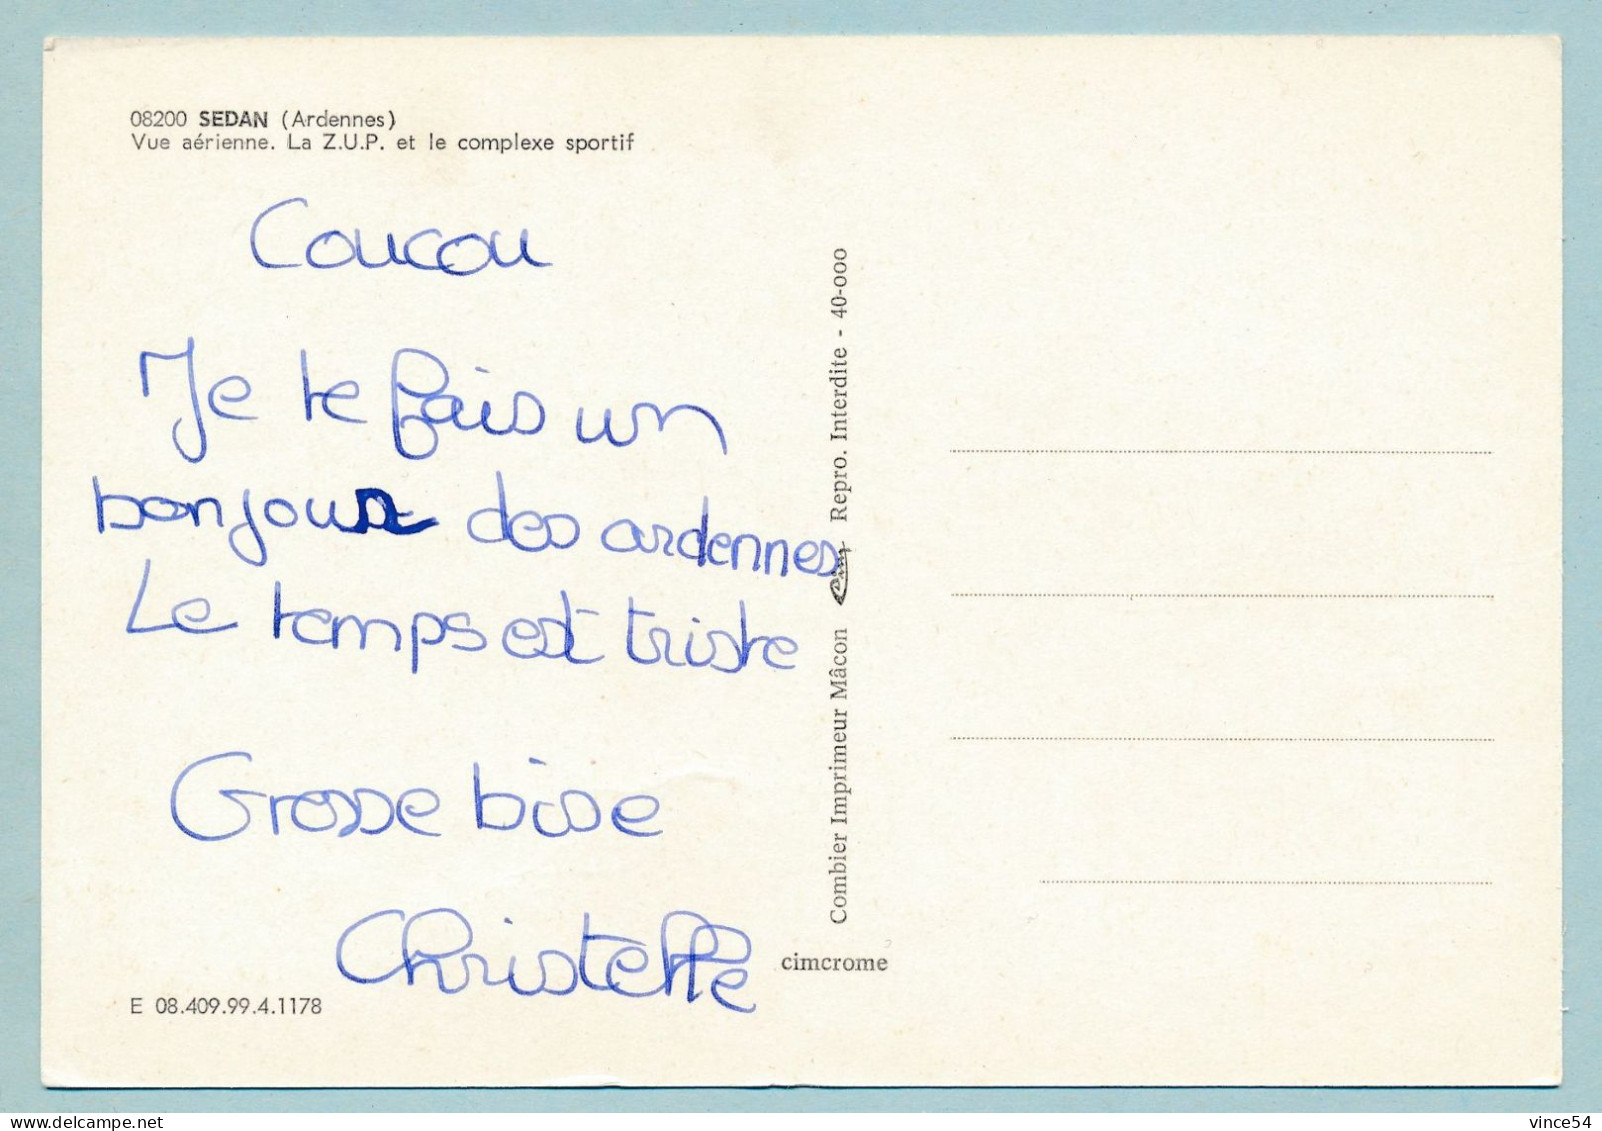 08200 SEDAN (Ardennes)
Vue aérienne. La Z.U.P. et le complexe sportif
Coucou
Je te fais un
bonjour des ardennes
Le temps est triste
Grosse bise
Christelle
E 08.409.99.4.1178
Combier Imprimeur Mâcon Cim Repro. Interdite - 40-000
cimcrome
vince54